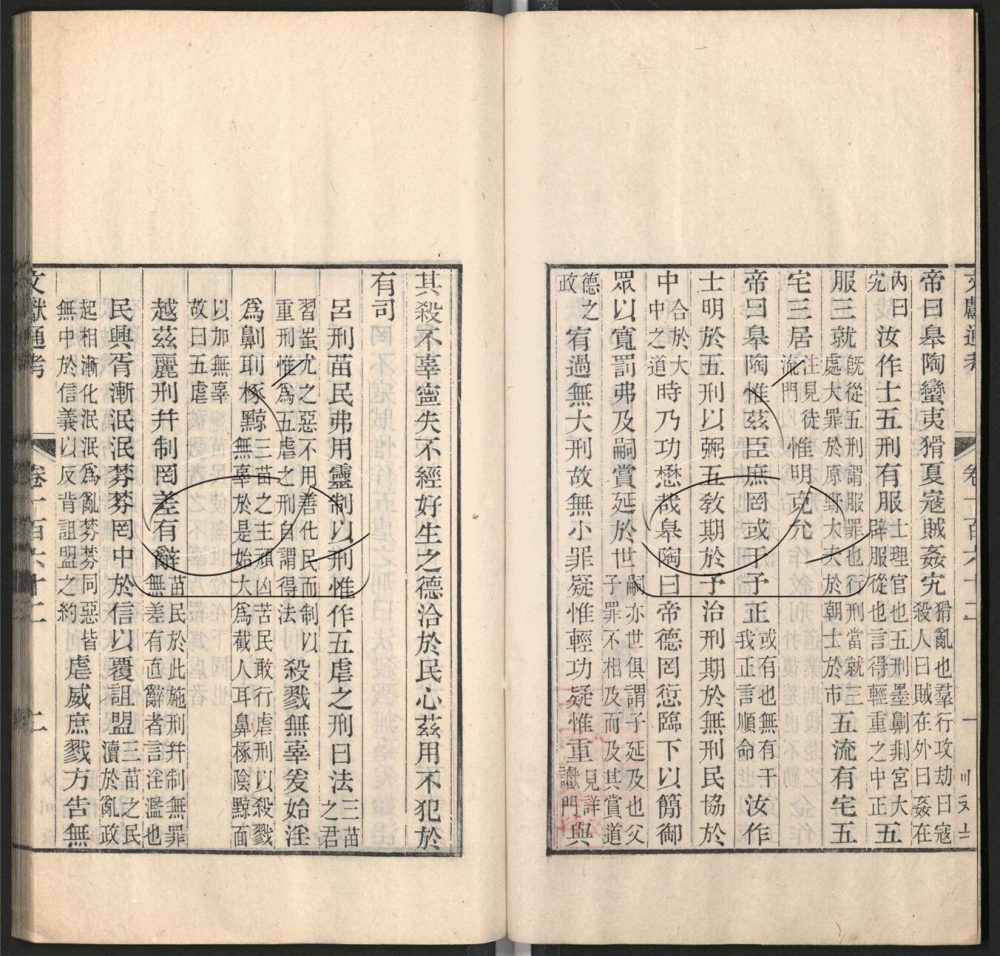 文獻通考　卷一百六十二　一
帝曰皋陶蠻夷猾夏寇賊姦宄猾亂也羣行攻劫曰寇殺人曰賊在外曰姦在
內曰宄汝作士五刑有服士理官也五刑墨劓剕宮大辟服從也言得輕重之中正五
服三就既從五刑謂服罪也行刑當就三處大罪於原野大夫於朝士於市五流有宅五
宅三居注見徒流門惟明克允
帝曰皋陶惟茲臣庶罔或干予正或有也無有干我正言順命汝作
士明於五刑以弼五教期於予治刑期於無刑民協於
中合於大中之道時乃功懋哉皋陶曰帝德罔愆臨下以簡御
眾以寬罰弗及嗣賞延於世嗣亦世俱謂子延及也父子罪不相及而及其賞道
德之政宥過無大刑故無小罪疑惟輕功疑惟重見詳讞門與
其殺不辜寧失不經好生之德洽於民心茲用不犯於
有司
呂刑苗民弗用靈制以刑惟作五虐之刑曰法三苗之君
習蚩尤之惡不用善化民而制以重刑惟為五虐之刑自謂得法殺戮無辜爰始淫
為劓刵椓黥三苗之主頑凶苦民敢行虐刑以殺戮無辜於是始大為截人耳鼻椓陰黥面
以加無辜故曰五虐
越茲麗刑幷制罔差有辭苗民於此施刑幷制無罪無差有直辭者言淫濫也
民興胥漸泯泯棼棼罔中於信以覆詛盟三苗之民瀆於亂政
起相漸化泯泯為亂棼棼同惡皆無中於信義以反背詛盟之約虐威庶戮方告無
文獻通考　卷一百六十二　二